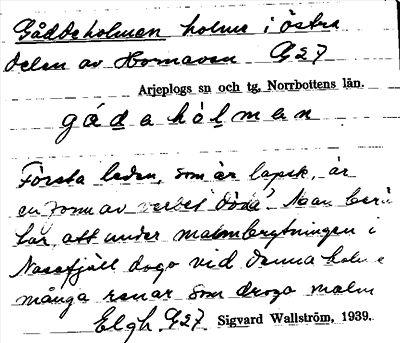 Gåddeholmen holme i östra
delen av Hornavan G27
Arjeplogs sn och tg, Norrbottens län.
gádahólman
Första leden, som är lapsk, är
en form av verbet 'döda'. Man berä
tar, att under malmbrytningen i
Nasafjäll dogo vid denna holme
många renar som drogo malm
Elgh G27 Sigvard Wallström, 1939.